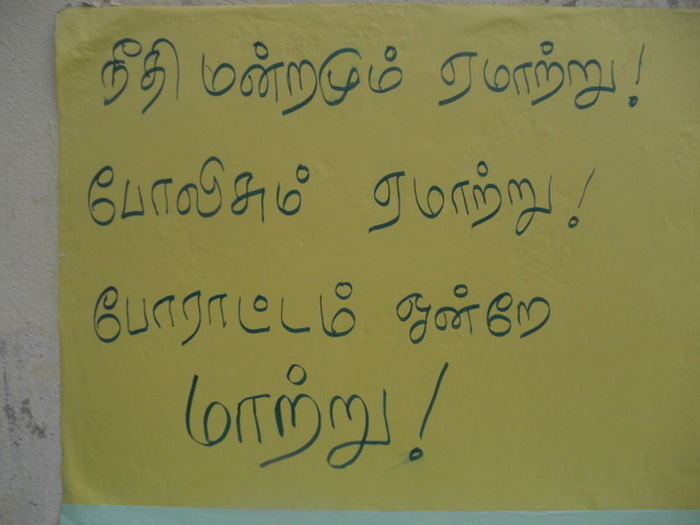 நீதி மன்றமும் ஏமாற்று!
போலிசும் ஏமாற்று!
போராட்டம் ஒன்றே
மாற்று!